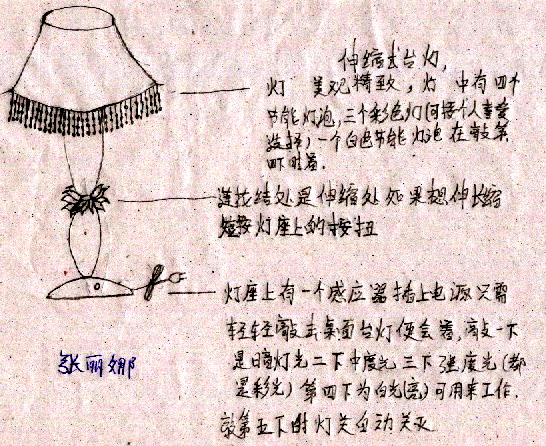 伸缩式台灯,
灯 美观精致, 灯 中有四个
节能灯泡,三个彩色灯(可按个人喜爱
选择)一个白色节能灯泡在敲第
四下时亮.
莲花结处是伸缩处如果想伸长缩
短按灯座上的按扭
灯座上有一个感应器插上电源只需
轻轻敲击桌面台灯便会亮,敲一下
是暗灯光二下中度光三下强度光(都
是彩光)第四下为白光(亮)可用来工作.
敲第五下时灯关自动关灭
张丽娜